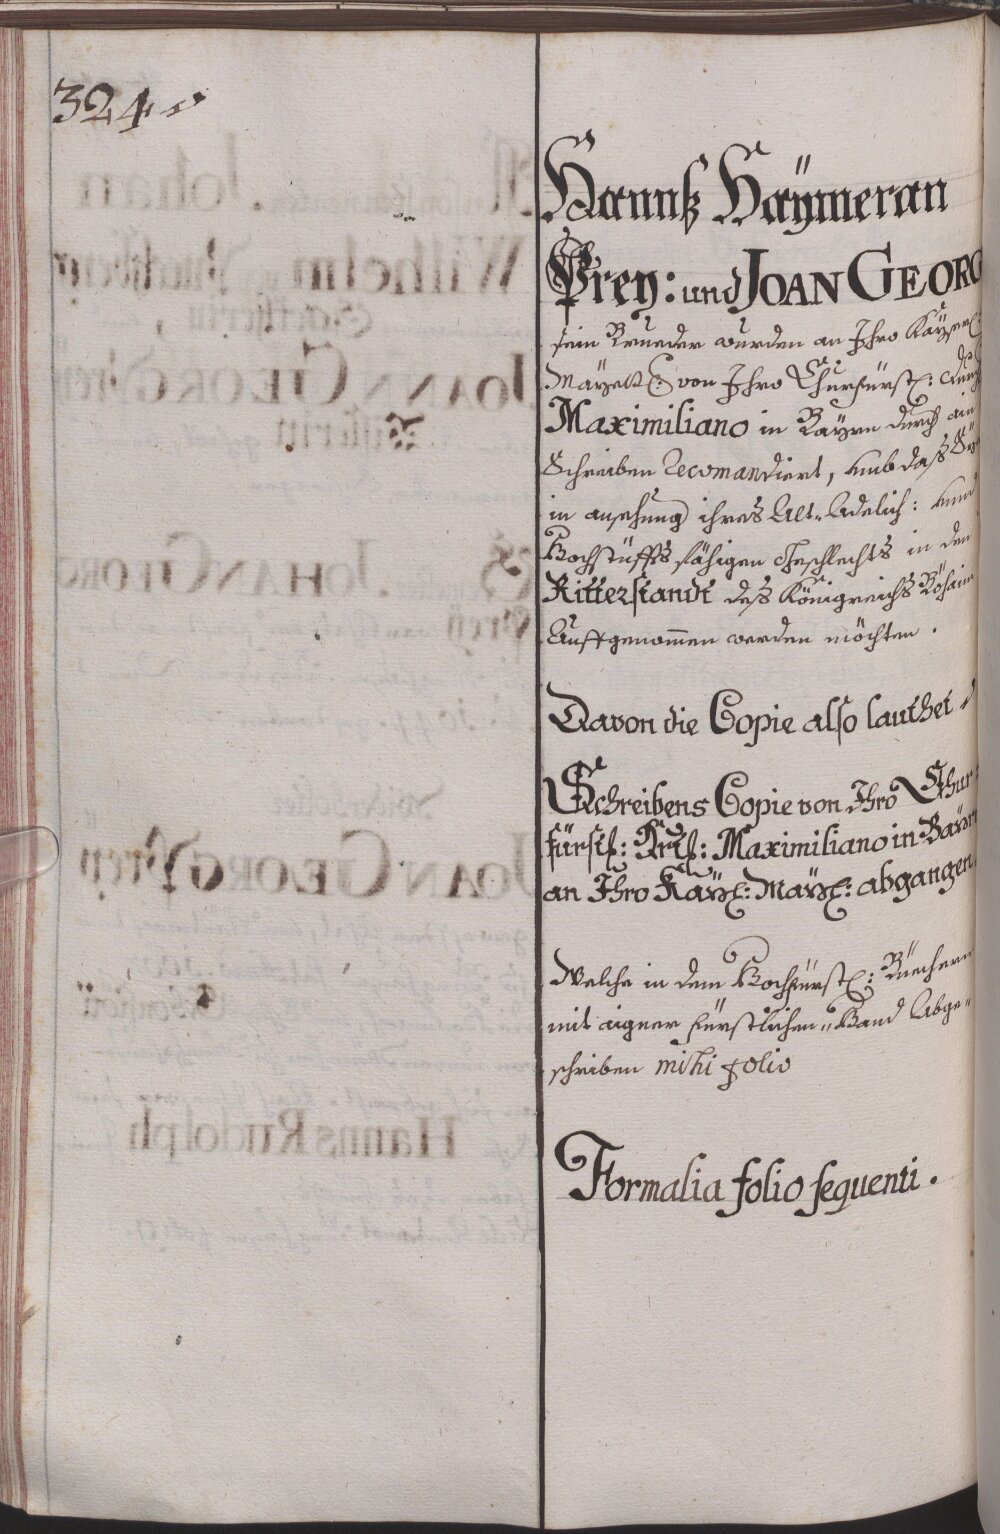 324
Hannß Häÿmeran
Preÿ: und JOAN GEORG
sein Brueder wurden an Ihro Käÿserl:
Maÿestt: von Ihro Churfürstl:
Maximiliano in Baÿrn durch ain
Schreiben Recomandiert, umb daß Sÿe
in ansehung ihres Alt-Adelich: unnd
Hochstüffts fähigen Geschlechts in den
Ritterstandt deß Königreichs Böhaim
Auffgenommen werden möchten.
Davon die Copie also lauthet
Schreibens Copie von Ihro Chur-
fürstl: Drtl: Maximiliano in Baÿrn
an Ihro Kaÿl: Maÿl: abgangen.
Welche in dem Hochfürstl: Büechern
mit aigner fürstlichen Hand Abge-
schriben mihi folio
Formalia folio sequenti.